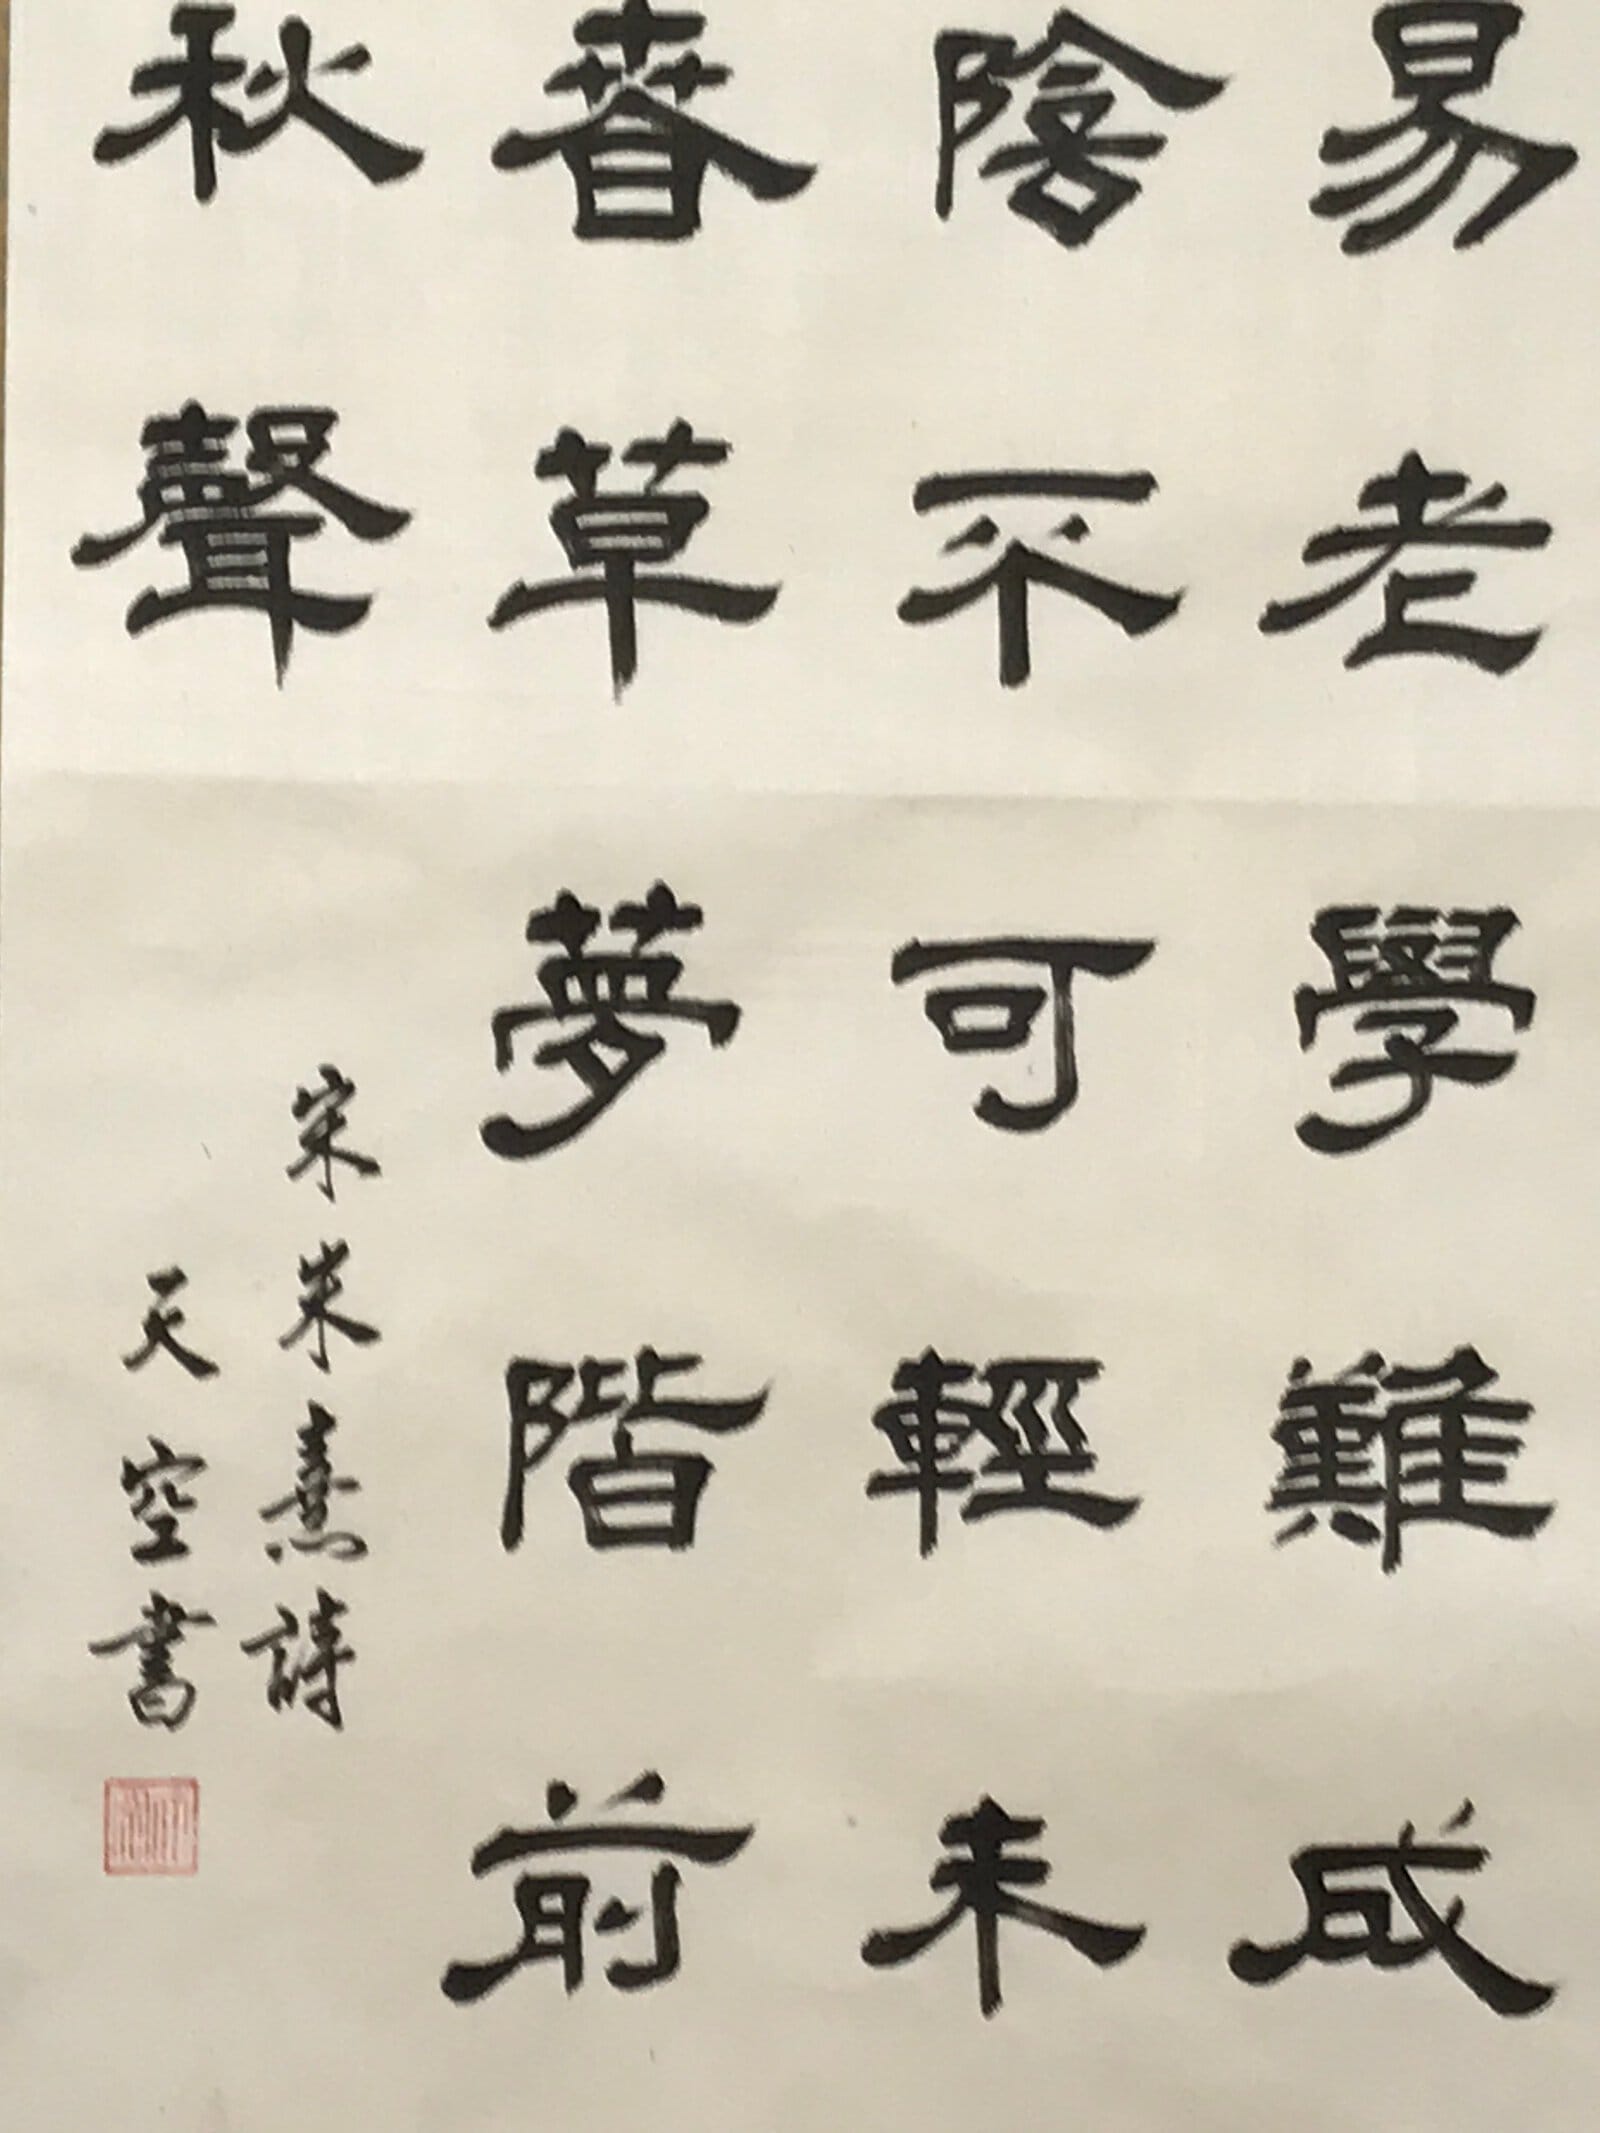 易老學難成
陰不可輕未
春草夢階前
秋聲
宋朱熹詩
天空書